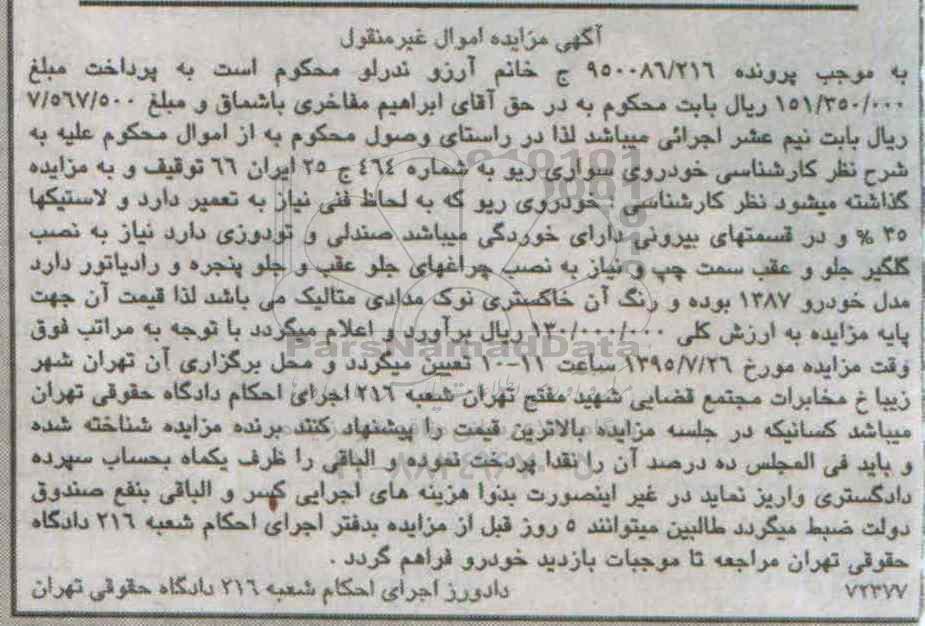 آگهی مزایده اموال غیرمنقول
به موجب پرونده ۹۵۰۰۸۶/۲۱۶ ج خانم آرزو ندرلو محکوم است به پرداخت مبلغ
۱۵۱/۳۵۰/۰۰۰ ریال بابت محکوم به در حق آقای ابراهیم مفاخری باشماق و مبلغ ۷/۵٦۷/۵۰۰
ریال بابت نیم عشر اجرائی میباشد لذا در راستای وصول محکوم به از اموال محکوم علیه به
شرح نظر کارشناسی خودروی سواری ریو به شماره ٤٦٤ ج ۲۵ ایران ٦٦ توقیف و به مزایده
گذاشته میشود نظر کارشناسی : خودروی ریو که به لحاظ فنی نیاز به تعمیر دارد و لاستیکها
۳۵ % و در قسمتهای بیرونی دارای خوردگی میباشد صندلی و تودوزی دارد نیاز به نصب
گلگیر جلو و عقب سمت چپ و نیاز به نصب چراغهای جلو عقب و جلو پنجره و رادیاتور دارد
مدل خودرو ۱۳۸۷ بوده و رنگ آن خاکستری نوک مدادی متالیک می باشد لذا قیمت آن جهت
پایه مزایده به ارزش کلی ۱۳۰/۰۰۰/۰۰۰ ریال برآورد و اعلام میگردد با توجه به مراتب فوق
وقت مزایده مورخ ۱۳۹۵/۷/۲٦ ساعت ۱۱-۱۰ تعیین میگردد و محل برگزاری آن تهران شهر
زیبا خ مخابرات مجتمع قضایی شهید مفتح تهران شعبه ۲۱٦ اجرای احکام دادگاه حقوقی تهران
میباشد کسانیکه در جلسه مزایده بالاترین قیمت را پیشنهاد کنند برنده مزایده شناخته شده
و باید فی المجلس ده درصد آن را نقدا پرداخت نموده و الباقی را ظرف یکماه بحساب سپرده
دادگستری واریز نماید در غیر اینصورت بدوا هزینه های اجرایی کسر و الباقی بنفع صندوق
دولت ضبط میگردد طالبین میتوانند ۵ روز قبل از مزایده بدفتر اجرای احکام شعبه ۲۱٦ دادگاه
حقوقی تهران مراجعه تا موجبات بازدید خودرو فراهم گردد .
۷۲۳۷۷ دادورز اجرای احکام شعبه ۲۱٦ دادگاه حقوقی تهران
ParsNamadData